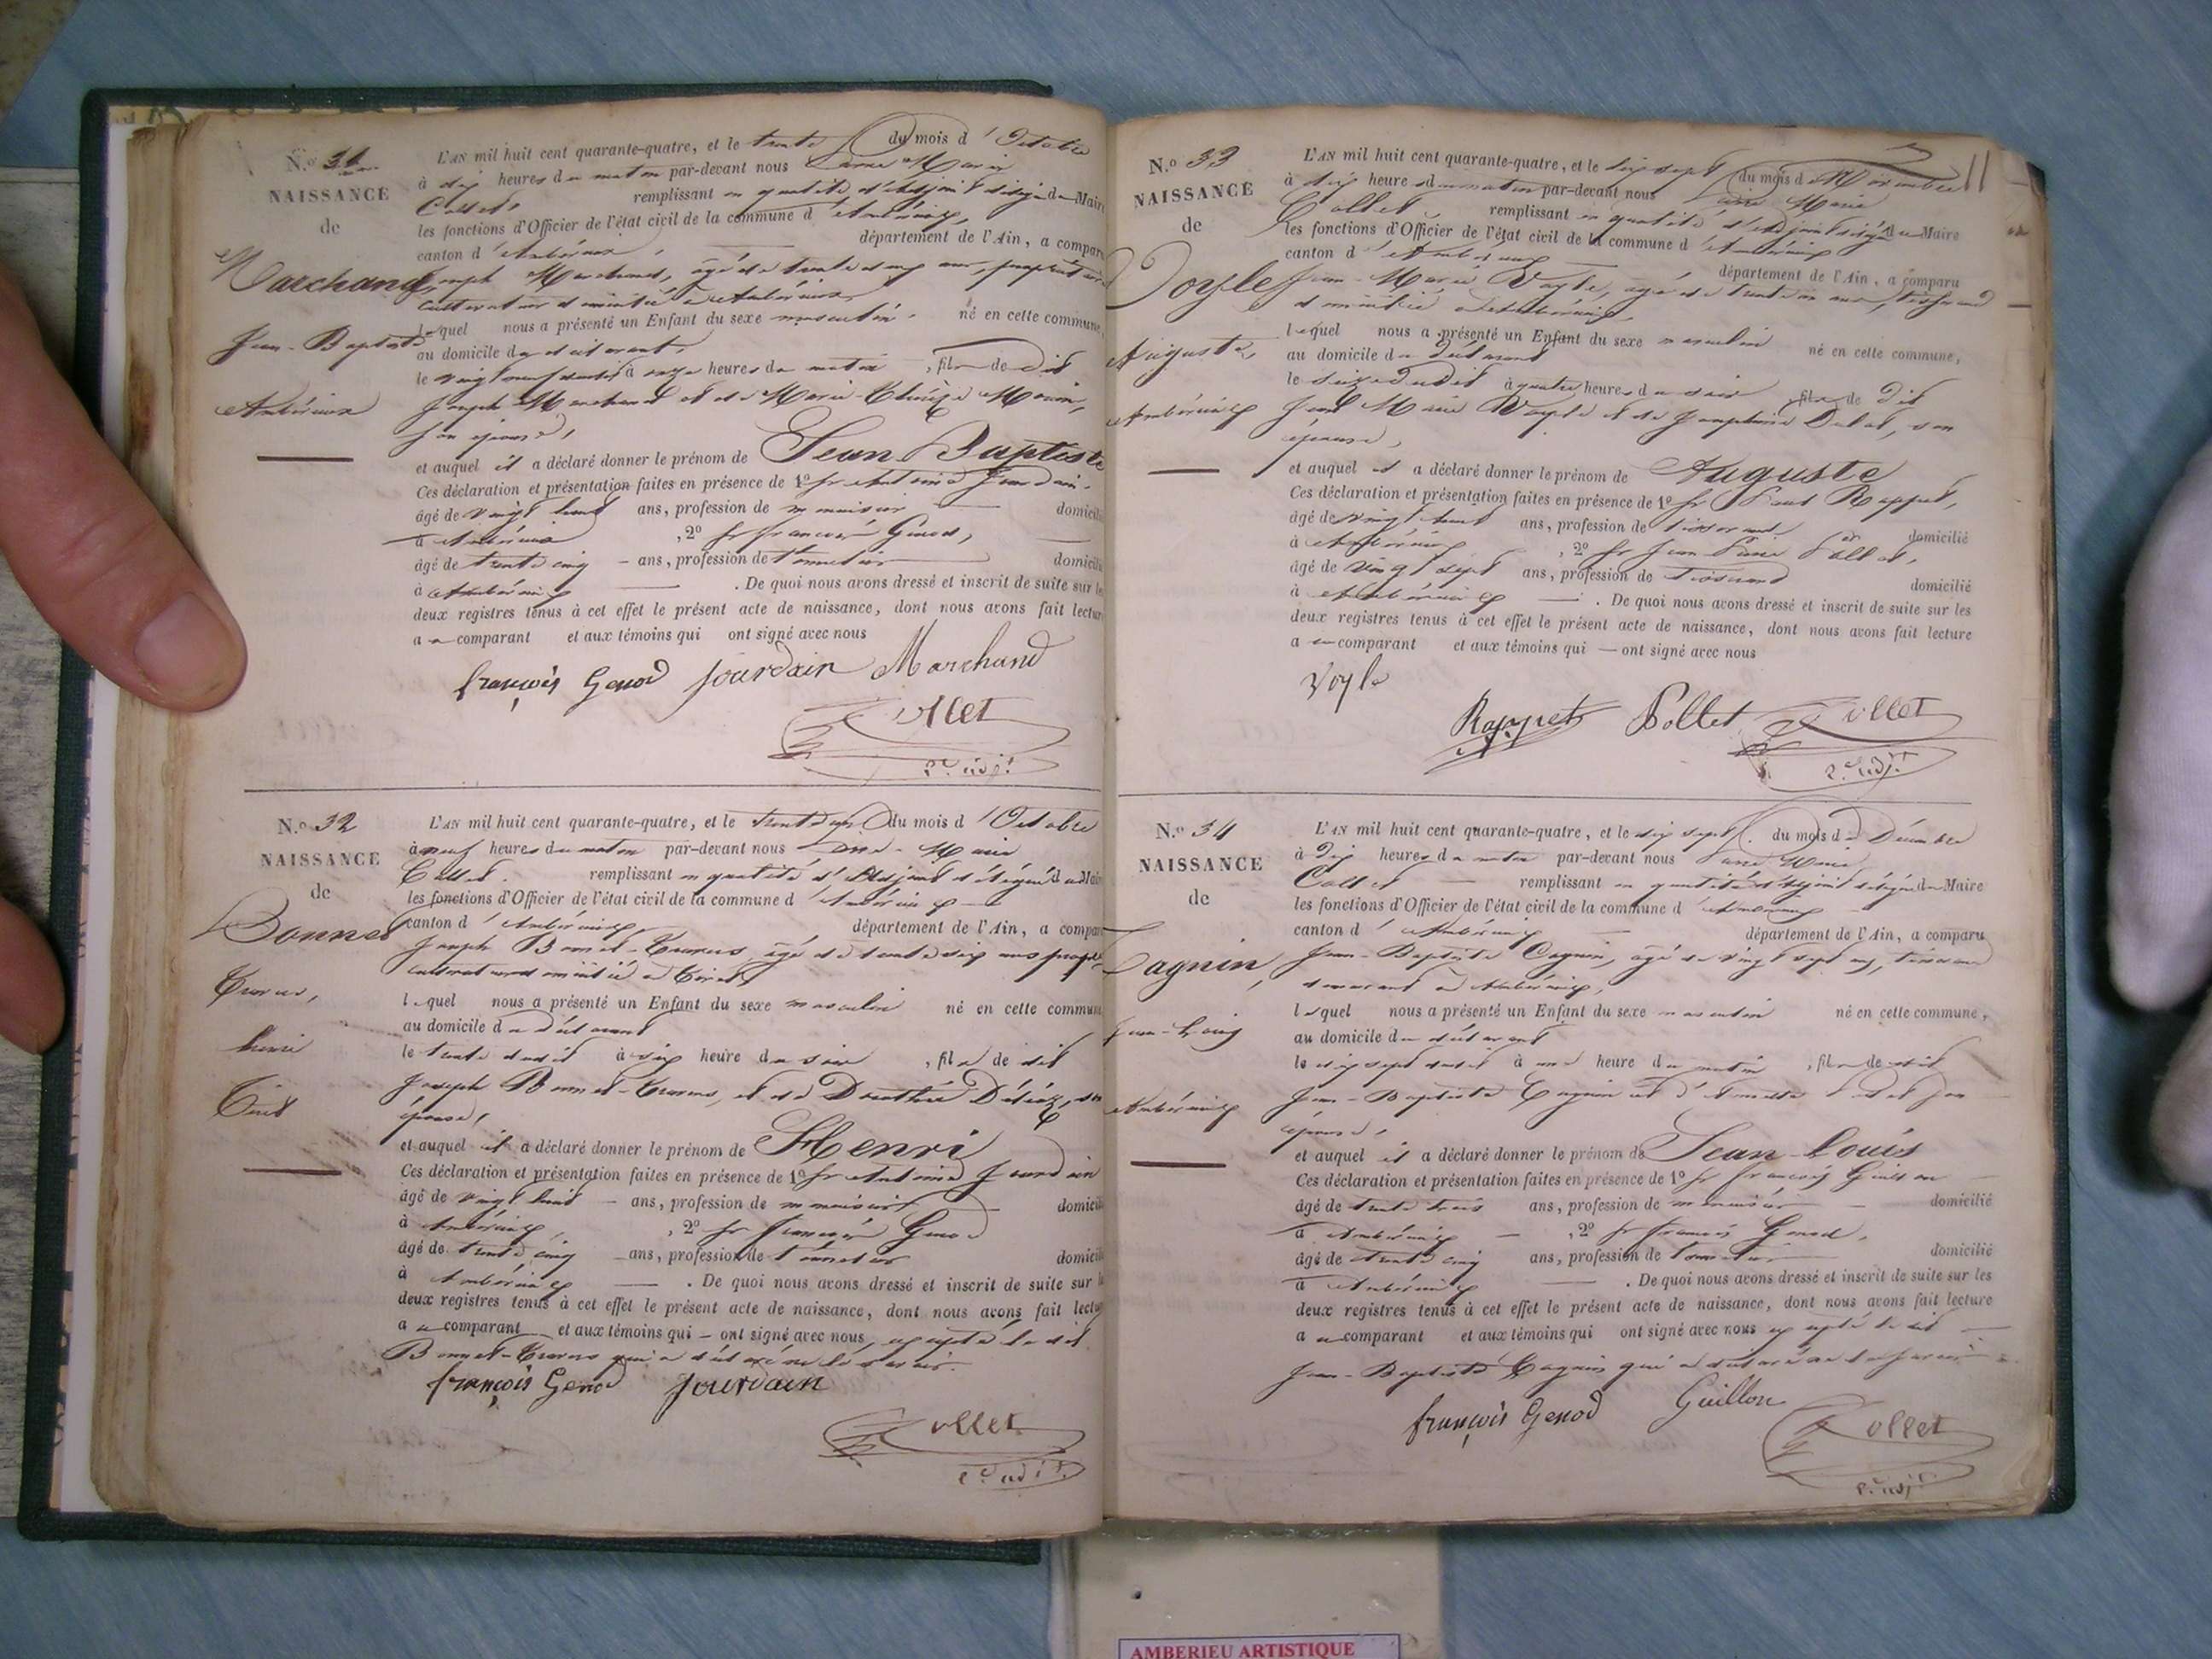 N.º 31
NAISSANCE
de
Marchand
Jean-Baptiste
Ambérieux
L'AN mil huit cent quarante-quatre, et le trente du mois d'Octobre
à dix heures du matin par-devant nous Marie
Collet remplissant en qualité d'adjoint délégué du Maire
les fonctions d'Officier de l'état civil de la commune d'Ambérieux,
canton d'Ambérieux, département de l'Ain, a comparu
Joseph Marchand, âgé de trente ans, propriétaire
cultivateur domicilié à Ambérieux
lequel nous a présenté un Enfant du sexe masculin né en cette commune,
au domicile du déclarant,
le vingt neuf dudit à onze heures du matin, fils de dit
Joseph Marchand et de Marie
son épouse,
et auquel il a déclaré donner le prénom de Jean Baptiste
Ces déclaration et présentation faites en présence de 1º Sr Antoine Jourdain
âgé de vingt huit ans, profession de menuisier domicilié
à Ambérieux, 2º Sr François Genod,
âgé de trente cinq ans, profession de tonnelier domicilié
à Ambérieux. De quoi nous avons dressé et inscrit de suite sur les
deux registres tenus à cet effet le présent acte de naissance, dont nous avons fait lecture
au comparant et aux témoins qui ont signé avec nous
françois Genod Jourdain Marchand
Collet
2e adjt
N.º 32
NAISSANCE
de
Bonnet
henri
L'AN mil huit cent quarante-quatre, et le trente un du mois d'Octobre
à neuf heures du matin par-devant nous Marie
Collet remplissant en qualité d'Adjoint délégué du Maire
les fonctions d'Officier de l'état civil de la commune d'Ambérieux
canton d'Ambérieux, département de l'Ain, a comparu
Joseph Bonnet âgé de trente six ans
cultivateur domicilié à
lequel nous a présenté un Enfant du sexe masculin né en cette commune
au domicile du déclarant
le trente dudit à six heure du soir, fils de dit
Joseph Bonnet et de Dorothée
épouse,
et auquel il a déclaré donner le prénom de Henri
Ces déclaration et présentation faites en présence de 1º Sr Antoine Jourdain
âgé de vingt huit ans, profession de menuisier domicilié
à Ambérieux, 2º Sr François Genod
âgé de trente cinq ans, profession de tonnelier domicilié
à Ambérieux. De quoi nous avons dressé et inscrit de suite sur les
deux registres tenus à cet effet le présent acte de naissance, dont nous avons fait lecture
au comparant et aux témoins qui ont signé avec nous, excepté le dit
Bonnet qui a déclaré ne le savoir.
françois Genod Jourdain
Collet
2e adjt
N.º 33
NAISSANCE
de
Voyle
Auguste,
Ambérieux
L'AN mil huit cent quarante-quatre, et le dix sept du mois de Novembre
à dix heures du matin par-devant nous Marie
Collet remplissant en qualité d'adjoint délégué du Maire
les fonctions d'Officier de l'état civil de la commune d'Ambérieux
canton d'Ambérieux département de l'Ain, a comparu
Jean-Marie Voyle, âgé de trente un ans, tisserand
domicilié à Ambérieux,
lequel nous a présenté un Enfant du sexe masculin né en cette commune,
au domicile du déclarant
le seize dudit à quatre heures du soir fils de dit
Jean Marie Voyle et de Joséphine son
épouse,
et auquel il a déclaré donner le prénom de Auguste
Ces déclaration et présentation faites en présence de 1º Sr Paul Rappet,
âgé de vingt huit ans, profession de tisserand domicilié
à Ambérieux, 2º Sr Jean Pollet,
âgé de vingt sept ans, profession de Tisserand domicilié
à Ambérieux. De quoi nous avons dressé et inscrit de suite sur les
deux registres tenus à cet effet le présent acte de naissance, dont nous avons fait lecture
au comparant et aux témoins qui ont signé avec nous
Voyle
Rappet Pollet Collet
2e adjt
N.º 34
NAISSANCE
de
Cagnin,
Jean-Louis
Ambérieux
L'AN mil huit cent quarante-quatre, et le dix sept du mois de Décembre
à dix heures du matin par-devant nous Marie
Collet remplissant en qualité d'adjoint délégué du Maire
les fonctions d'Officier de l'état civil de la commune d'Ambérieux
canton d'Ambérieux département de l'Ain, a comparu
Jean-Baptiste Cagnin, âgé de vingt sept ans, tisserand
demeurant à Ambérieux,
lequel nous a présenté un Enfant du sexe masculin né en cette commune,
au domicile du déclarant
le dix sept dudit à une heure du matin, fils de dit
Jean-Baptiste Cagnin et d' son
épouse,
et auquel il a déclaré donner le prénom de Jean Louis
Ces déclaration et présentation faites en présence de 1º Sr François Guillon
âgé de trente trois ans, profession de menuisier domicilié
à Ambérieux 2º Sr François Genod,
âgé de trente cinq ans, profession de tonnelier domicilié
à Ambérieux. De quoi nous avons dressé et inscrit de suite sur les
deux registres tenus à cet effet le présent acte de naissance, dont nous avons fait lecture
au comparant et aux témoins qui ont signé avec nous excepté le dit
Jean-Baptiste Cagnin qui a déclaré ne le savoir
françois Genod Guillon
Collet
2e adjt
AMBERIEU ARTISTIQUE